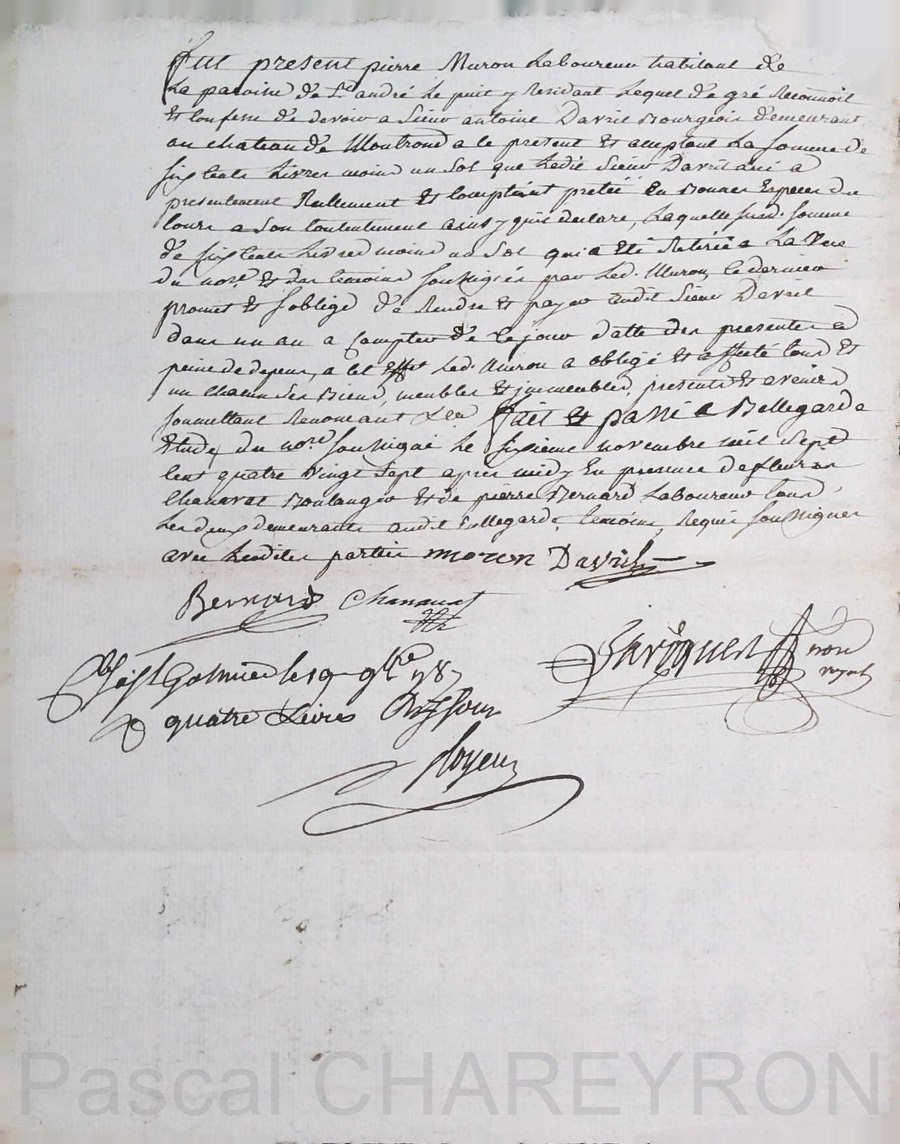 Fut present pierre Muron Laboureur habitant de
La paroise de St. andré Le puit y Residant Lequel de gré Reconnoit
Et Confesse de devoir a Sieur antoine Davril Bourgeois demeurant
au chateau de Montrond a le present Et acceptant La somme de
six cents Livres moins un Sol que Ledit Sieur Davril lui a
presentement Réellement Et Comptant preté En Bonnes Especes du
Cours a Son Contentement ainsy quil declare, Laquelle susd. somme
de six cents Livres moins un Sol qui a été Retirée a La Vue
du nore. & des temoins soussignés par Led. Muron, ce dernier
promet & soblige de Rendre & payer audit Sieur Davril
dans un an a Compter de ce jour datte des presentes a
peine de depens, a cet Effet Led. Muron a obligé Et affecté tous Et
un chacun Ses Biens, meubles & immeubles, presents Et avenir
soumettant Renonçant &ca. Fait & passé a Bellegarde
étude du nore. soussigné Le sixieme novembre mil Sept
Cent quatre vingt Sept après midy En presence de fleury
Chanavat Boulanger Et de pierre Bernard Laboureur tous
Les deux demeurants audit Bellegarde, temoins, Requis soussignés
avec Lesdites parties moron Davril
Bernard Chanavat
nore
royal
Galmier le 19 9bre 1787
quatre Livres dix sous
Pascal CHAREYRON